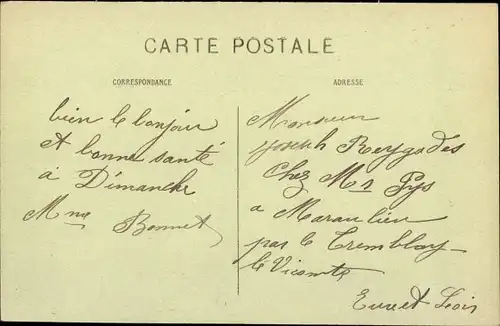 CARTE POSTALE
CORRESPONDANCE
bien le bonjour
et bonne santé
à Dimanche
Mme Bonnet
ADRESSE
Monsieur
joseph Reygades
Chez Mr Pys
a
par le Tremblay
le Vicomte
Eure et Loir